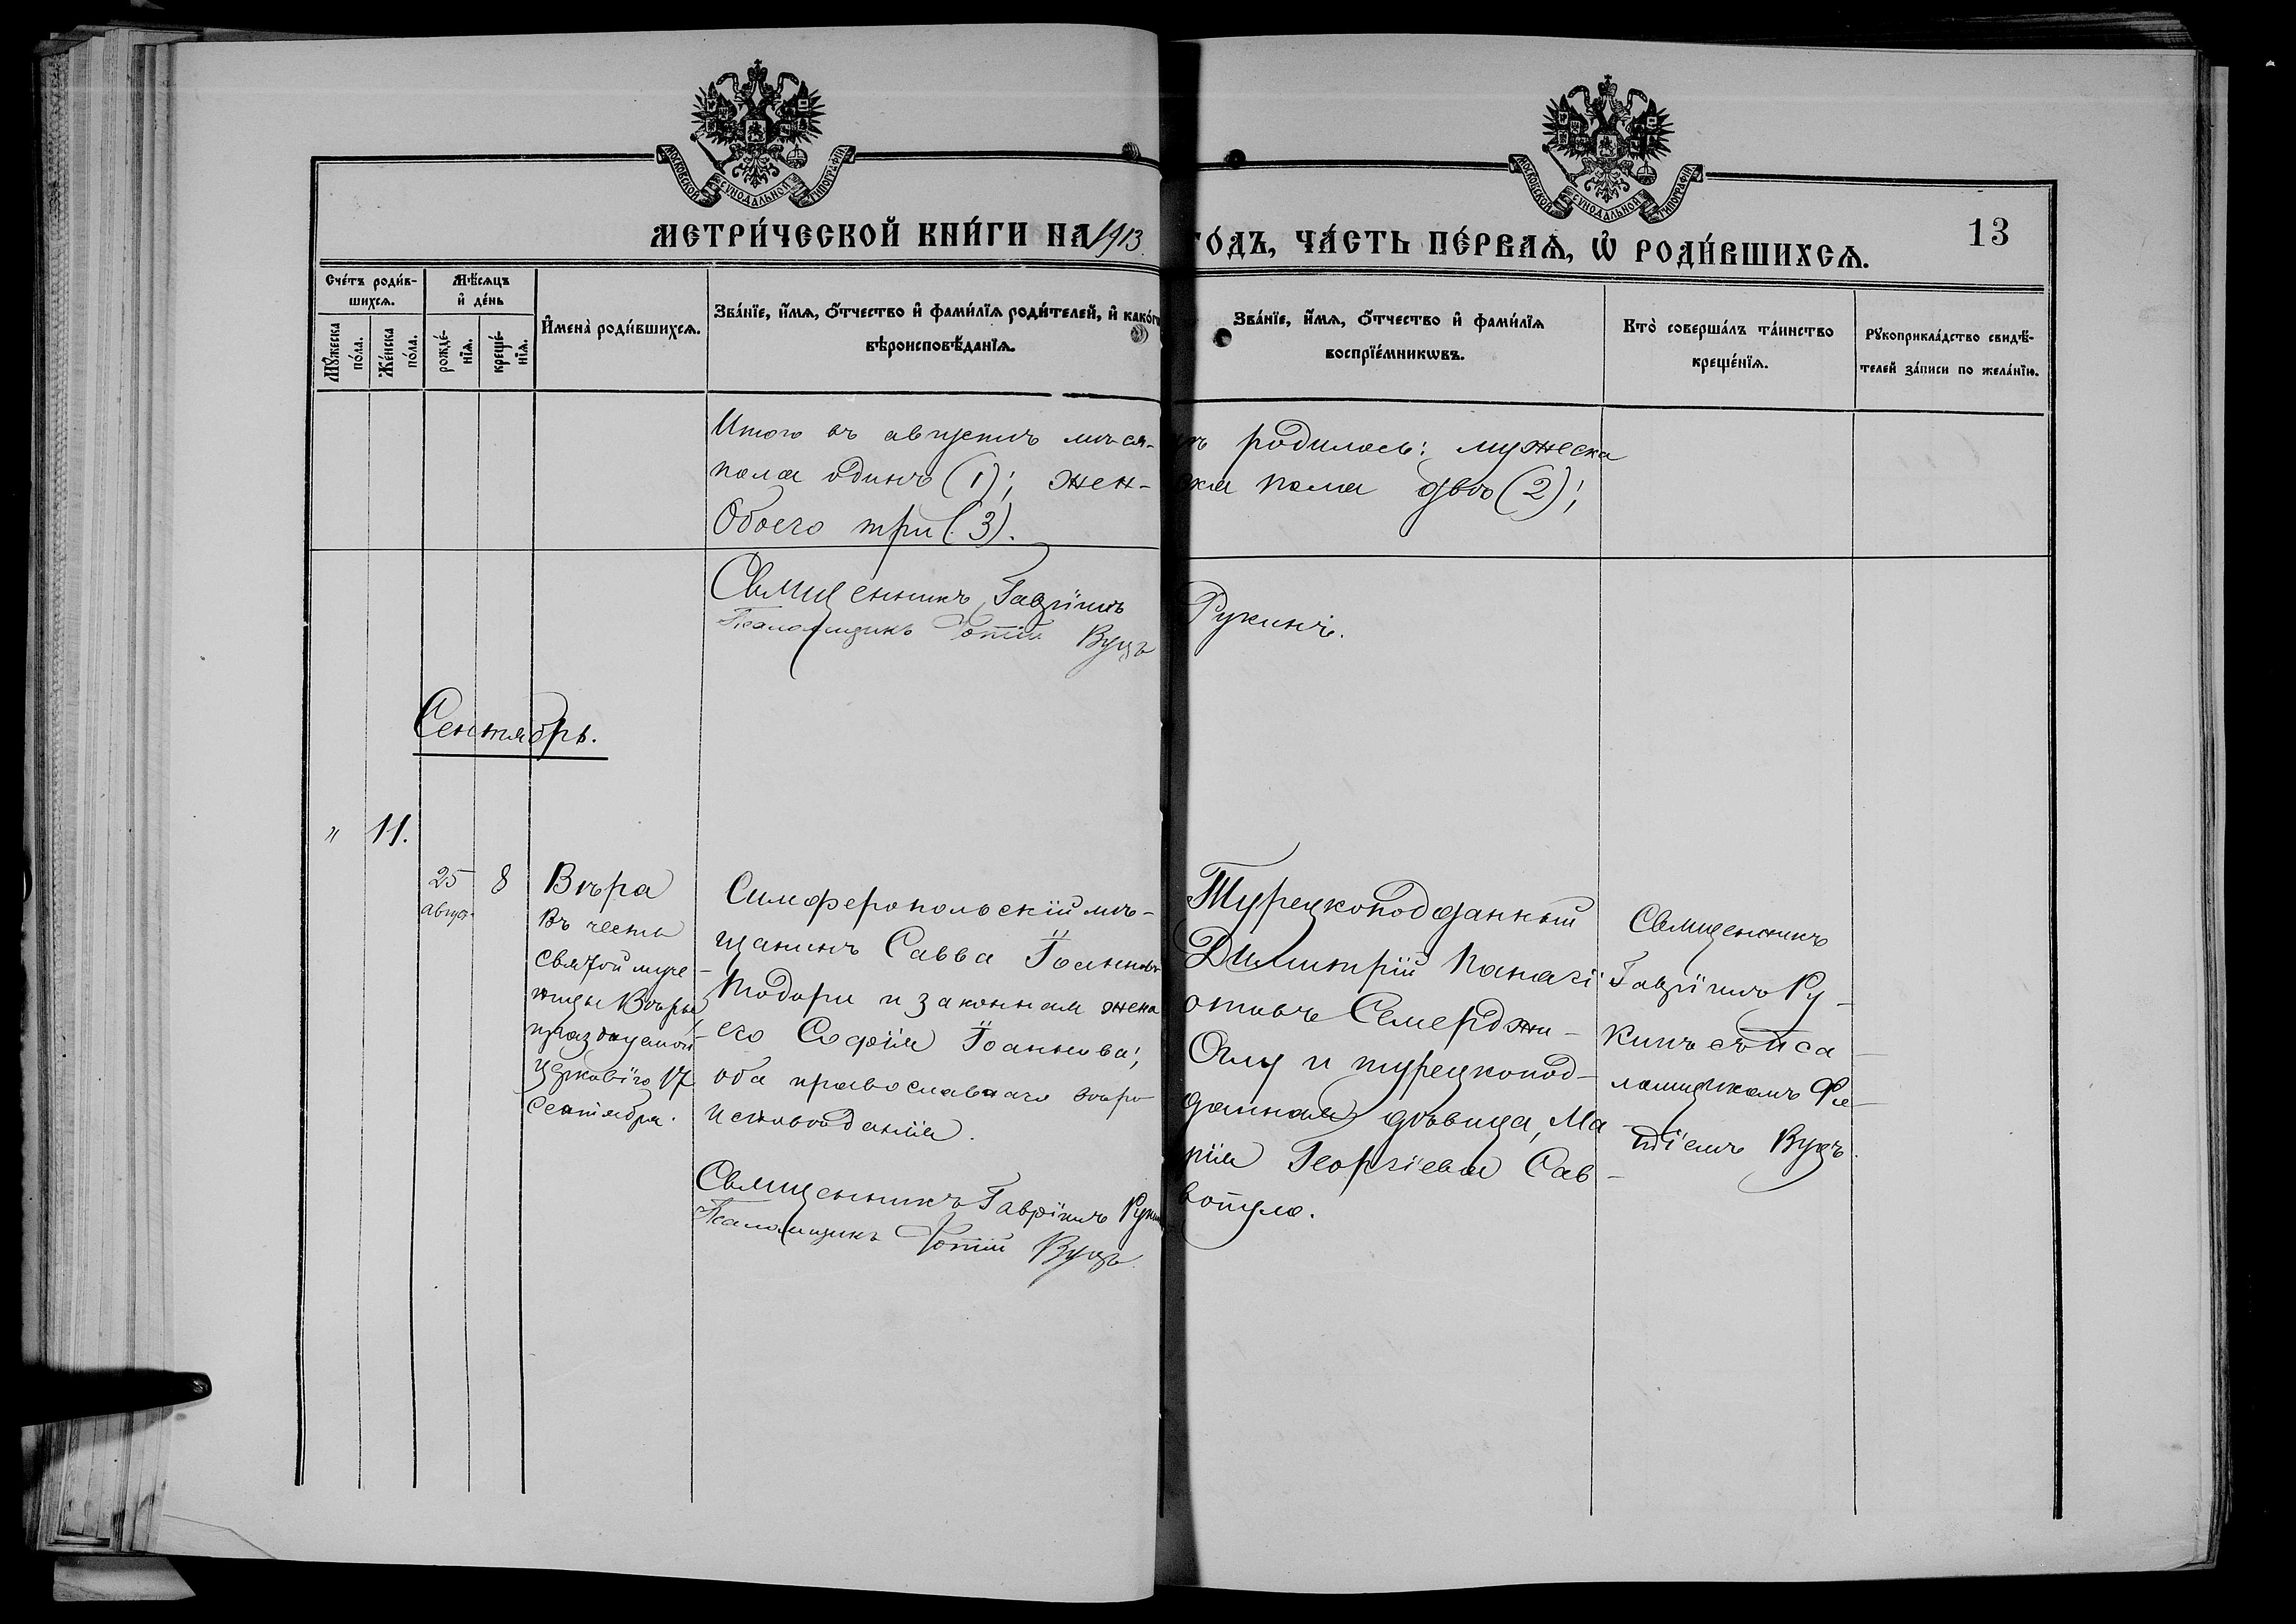 МОСКОВСКОЙ СѴНОДАЛЬНОЙ ТИПОГРАФІИ
МОСКОВСКОЙ СѴНОДАЛЬНОЙ ТИПОГРАФІИ
МЕТРИ́ЧЕСКОЙ КНИ́ГИ НА 1913
ГО́ДЪ, ЧА́СТЬ ПЕ́РВАѦ, Ѽ РОДИ́ВШИХСѦ.
13
Сче́тъ роди́в-
шихсѧ.
Мѣ́сѧцъ
и҆ де́нь
Мꙋ́жеска
по́ла.
Же́нска
по́ла.
рожде́-
нїѧ.
креще́-
нїѧ.
И҆мена̀ роди́вшихсѧ.
Зва́нїе, и҆́мѧ, ѻ҆́тчество и҆ фами́лїѧ роди́телей, и҆ како́гѡ
вѣроисповѣ́данїѧ.
Зва́нїе, и҆́мѧ, ѻ҆́тчество и҆ фами́лїѧ
воспрїе́мникѡвъ.
Кто̀ соверша́лъ та́инство
креще́нїѧ.
Рꙋкоприкла́дство свидѣ́-
телей за́писи по жела́нїю.
Итого въ августѣ мѣся-
цѣ родилось: мужеска
пола одинъ (1); жен-
ска пола двѣ (2);
Обоего три (3).
Священникъ Гавріилъ
Рукинъ.
Псаломщикъ Фотій Вуцъ
Сентябрь.
" 11.
25
август.
8
Вѣра
Въ честь
святой муче-
ницы Вѣры,
празднуемой
церковію 17
Сентября.
Симферопольскій мѣ-
щанинъ Савва Іоанновъ
Тодори и законная жена
его Софія Іоаннова;
оба православнаго вѣро-
исповѣданія.
Священникъ Гавріилъ Рукинъ
Псаломщикъ Фотій Вуцъ.
Турецкоподданный
Димитрій Панагі-
отовъ Семерджи-
Оглу и турецкопод-
данная дѣвица, Ма-
рія Георгіева Сав-
вопуло.
Священникъ
Гавріилъ Ру-
кинъ съ пса-
ломщикомъ Фо-
тіемъ Вуцъ.